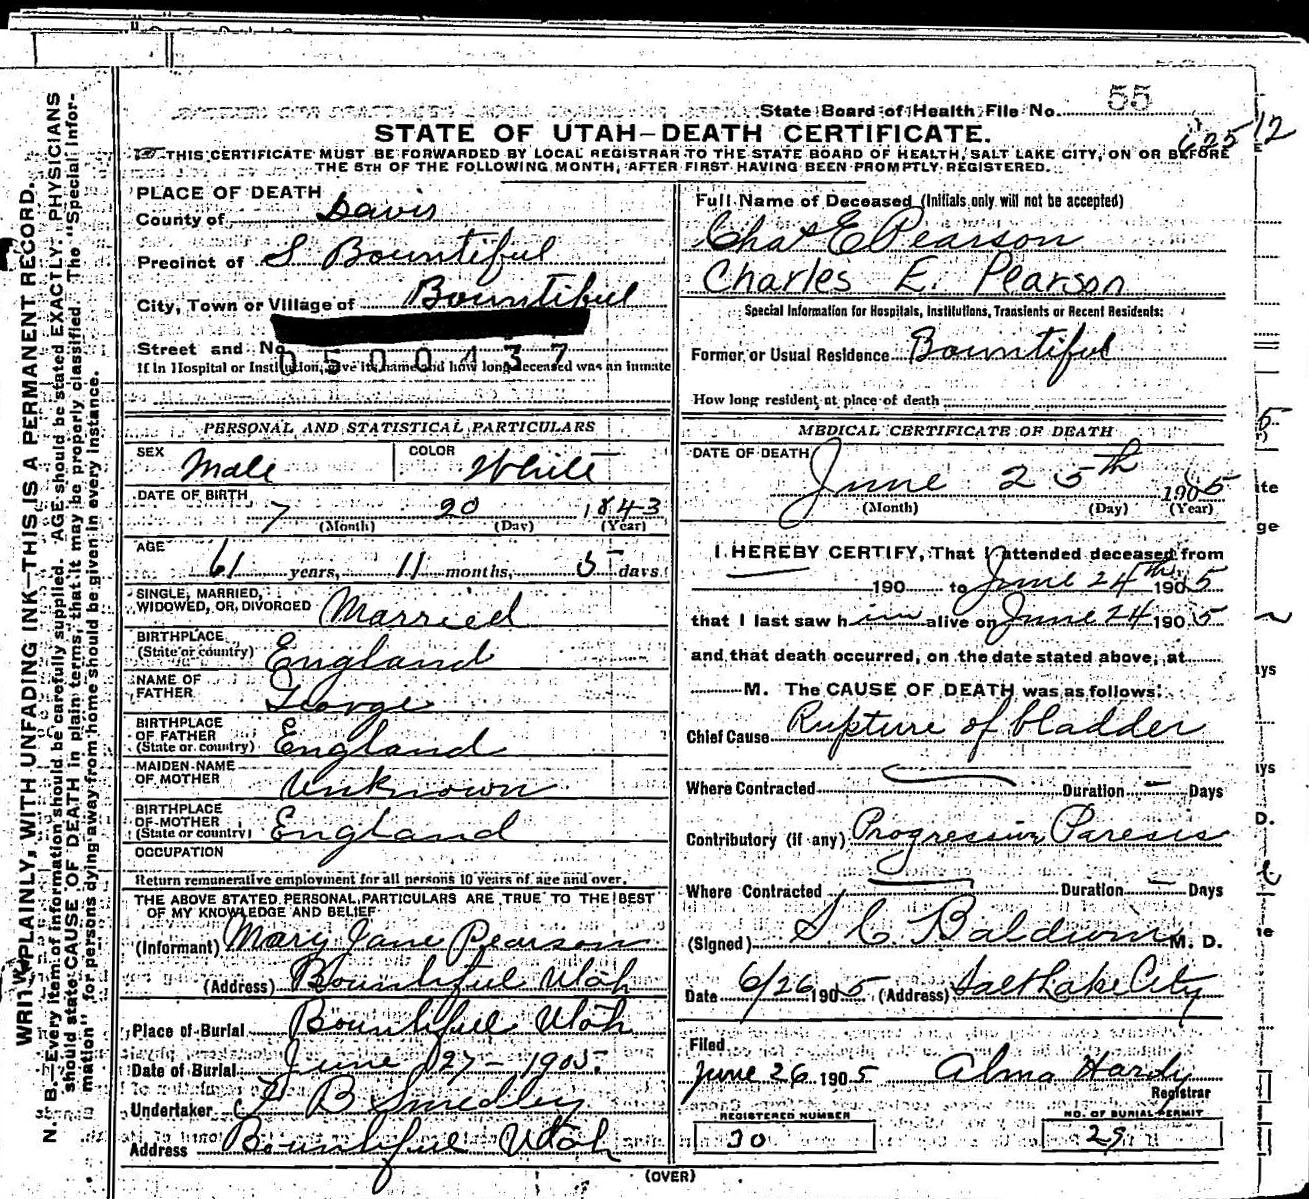 State Board of Health File No. 55
STATE OF UTAH—DEATH CERTIFICATE.
THIS CERTIFICATE MUST BE FORWARDED BY LOCAL REGISTRAR TO THE STATE BOARD OF HEALTH, SALT LAKE CITY, ON OR BEFORE
THE 5TH OF THE FOLLOWING MONTH, AFTER FIRST HAVING BEEN PROMPTLY REGISTERED.
WRITE PLAINLY, WITH UNFADING INK—THIS IS A PERMANENT RECORD.
N. B.—Every item of information should be carefully supplied. AGE should be stated EXACTLY. PHYSICIANS
should state CAUSE OF DEATH in plain terms, that it may be properly classified. The "Special Infor-
mation" for persons dying away from home should be given in every instance.
PLACE OF DEATH
County of Davis
Precinct of S Bountiful
City, Town or Village of Bountiful
Street and No.
0500437
If in Hospital or Institution, give its name and how long deceased was an inmate
PERSONAL AND STATISTICAL PARTICULARS
SEX Male COLOR White
DATE OF BIRTH 7 20 1843
(Month) (Day) (Year)
AGE 61 years, 11 months, 5 days
SINGLE, MARRIED,
WIDOWED, OR DIVORCED Married
BIRTHPLACE
(State or country) England
NAME OF
FATHER George
BIRTHPLACE
OF FATHER
(State or country) England
MAIDEN NAME
OF MOTHER Unknown
BIRTHPLACE
OF MOTHER
(State or country) England
OCCUPATION
Return remunerative employment for all persons 10 years of age and over.
THE ABOVE STATED PERSONAL PARTICULARS ARE TRUE TO THE BEST
OF MY KNOWLEDGE AND BELIEF
(Informant) Mary Jane Pearson
(Address) Bountiful Utah
Place of Burial Bountiful Utah
Date of Burial June 27 - 1905.
Undertaker B Smedley
Address Bountiful Utah
Full Name of Deceased (Initials only will not be accepted)
Chas E Pearson
Charles E. Pearson
Special Information for Hospitals, Institutions, Transients or Recent Residents:
Former or Usual Residence Bountiful
How long resident at place of death
MEDICAL CERTIFICATE OF DEATH
DATE OF DEATH
June 25th 1905
(Month) (Day) (Year)
I HEREBY CERTIFY, That I attended deceased from
190 to June 24th 1905
that I last saw him alive on June 24 1905
and that death occurred, on the date stated above, at
M. The CAUSE OF DEATH was as follows:
Chief Cause Rupture of bladder
Where Contracted Duration — Days
Contributory (if any) Progressive Paresis
Where Contracted Duration — Days
(Signed) S C Baldwin M. D.
Date 6/26 1905 (Address) Salt Lake City
Filed
June 26 1905 Alma Hardy
Registrar
REGISTERED NUMBER
30
NO. OF BURIAL PERMIT
29
(OVER)